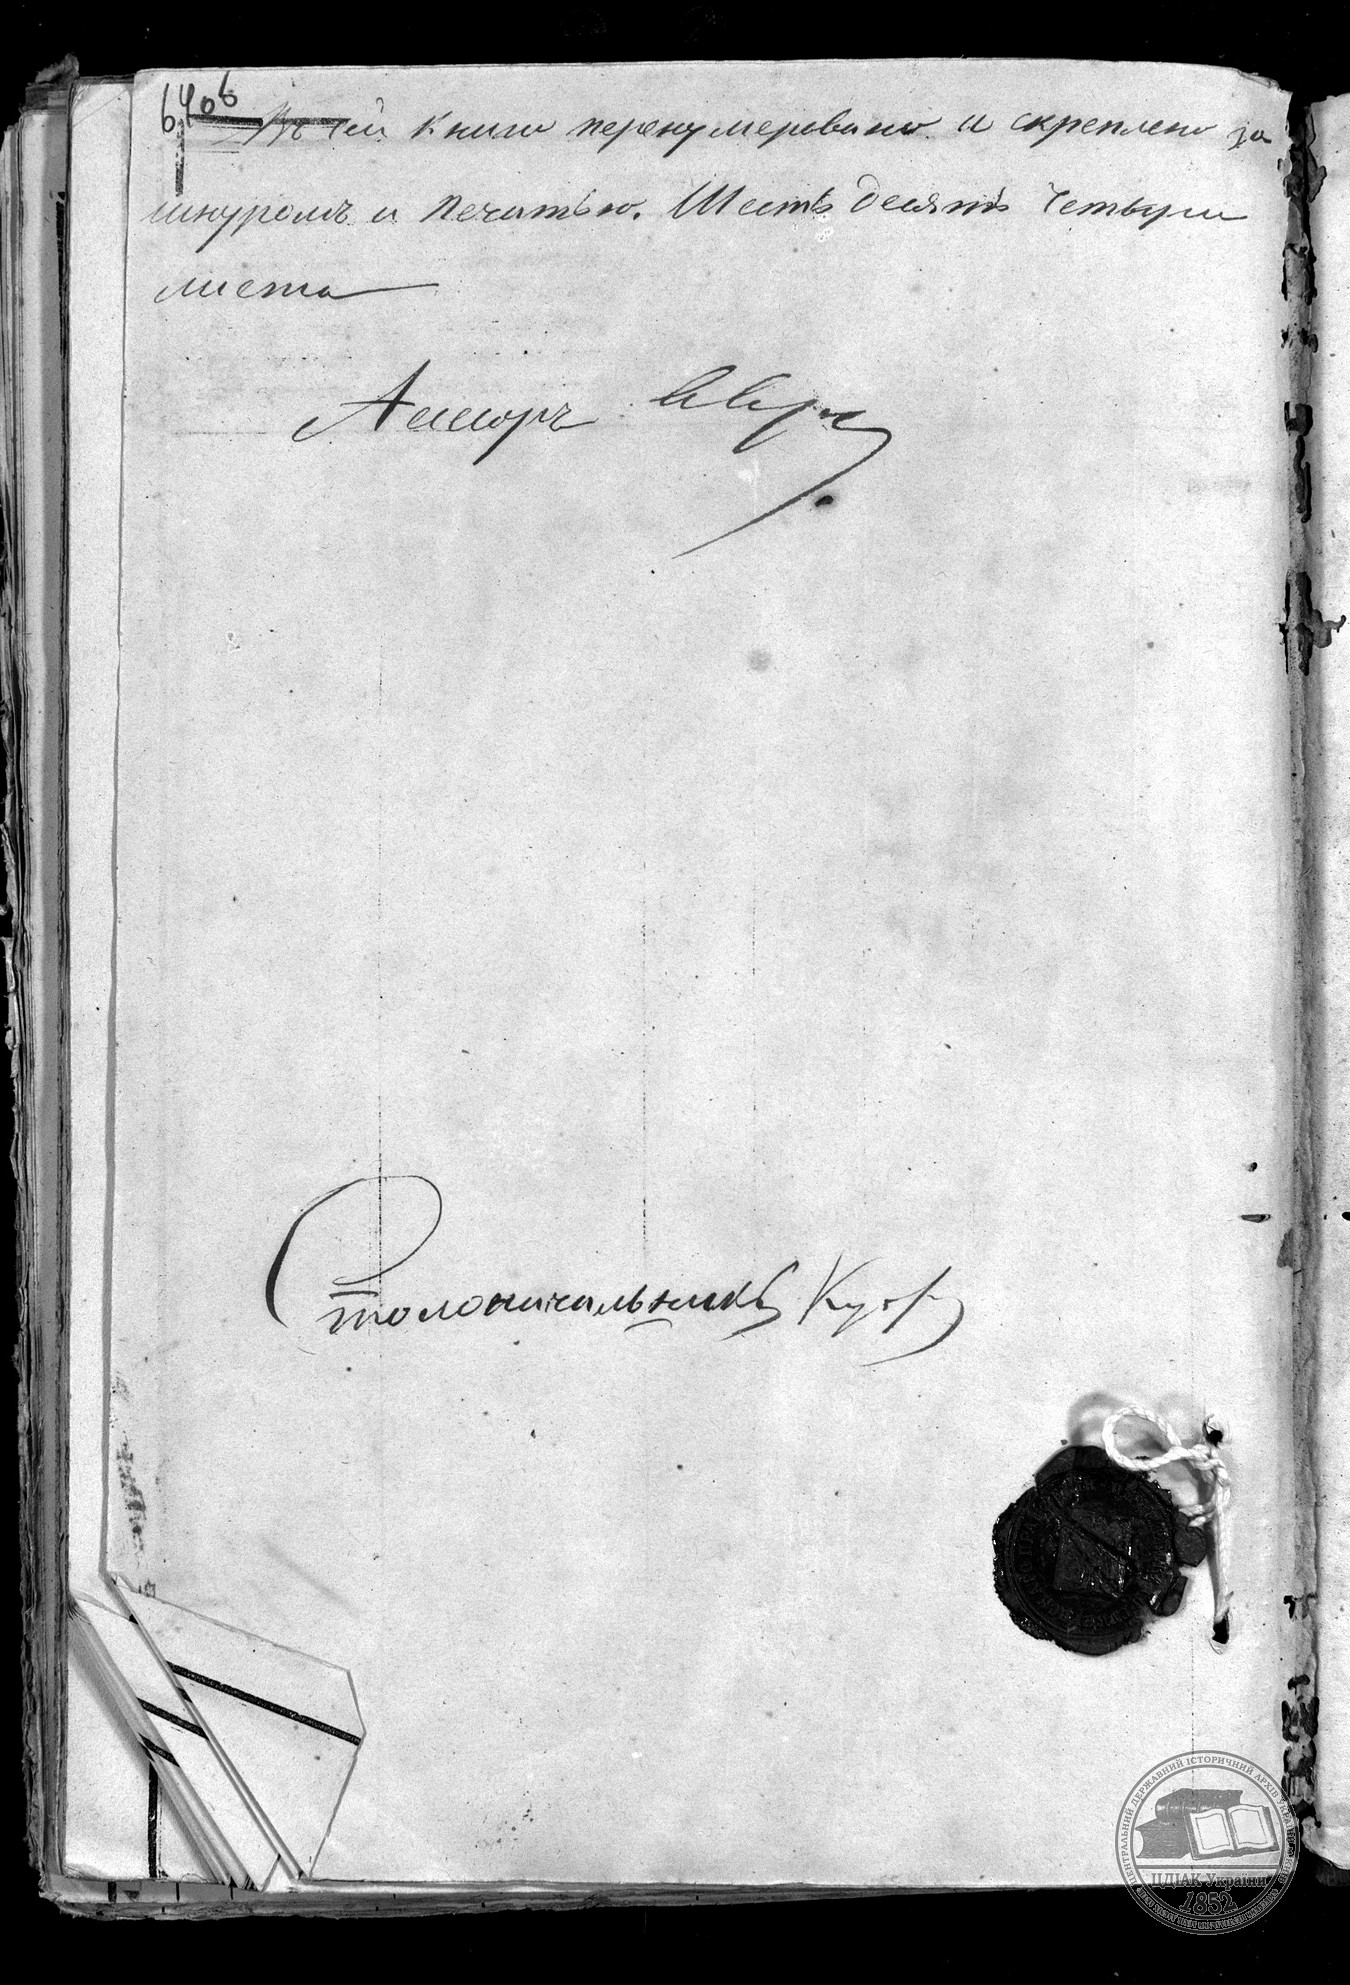 64об
Въ сей книге перенумеровано и скреплено за
шнуромъ и печатью. Шестьдесятъ четыри
листа
Асессоръ
Столоначальникъ
ЦЕНТРАЛЬНИЙ ДЕРЖАВНИЙ ІСТОРИЧНИЙ АРХІВ УКРАЇНИ
ЦДІАК України
1852